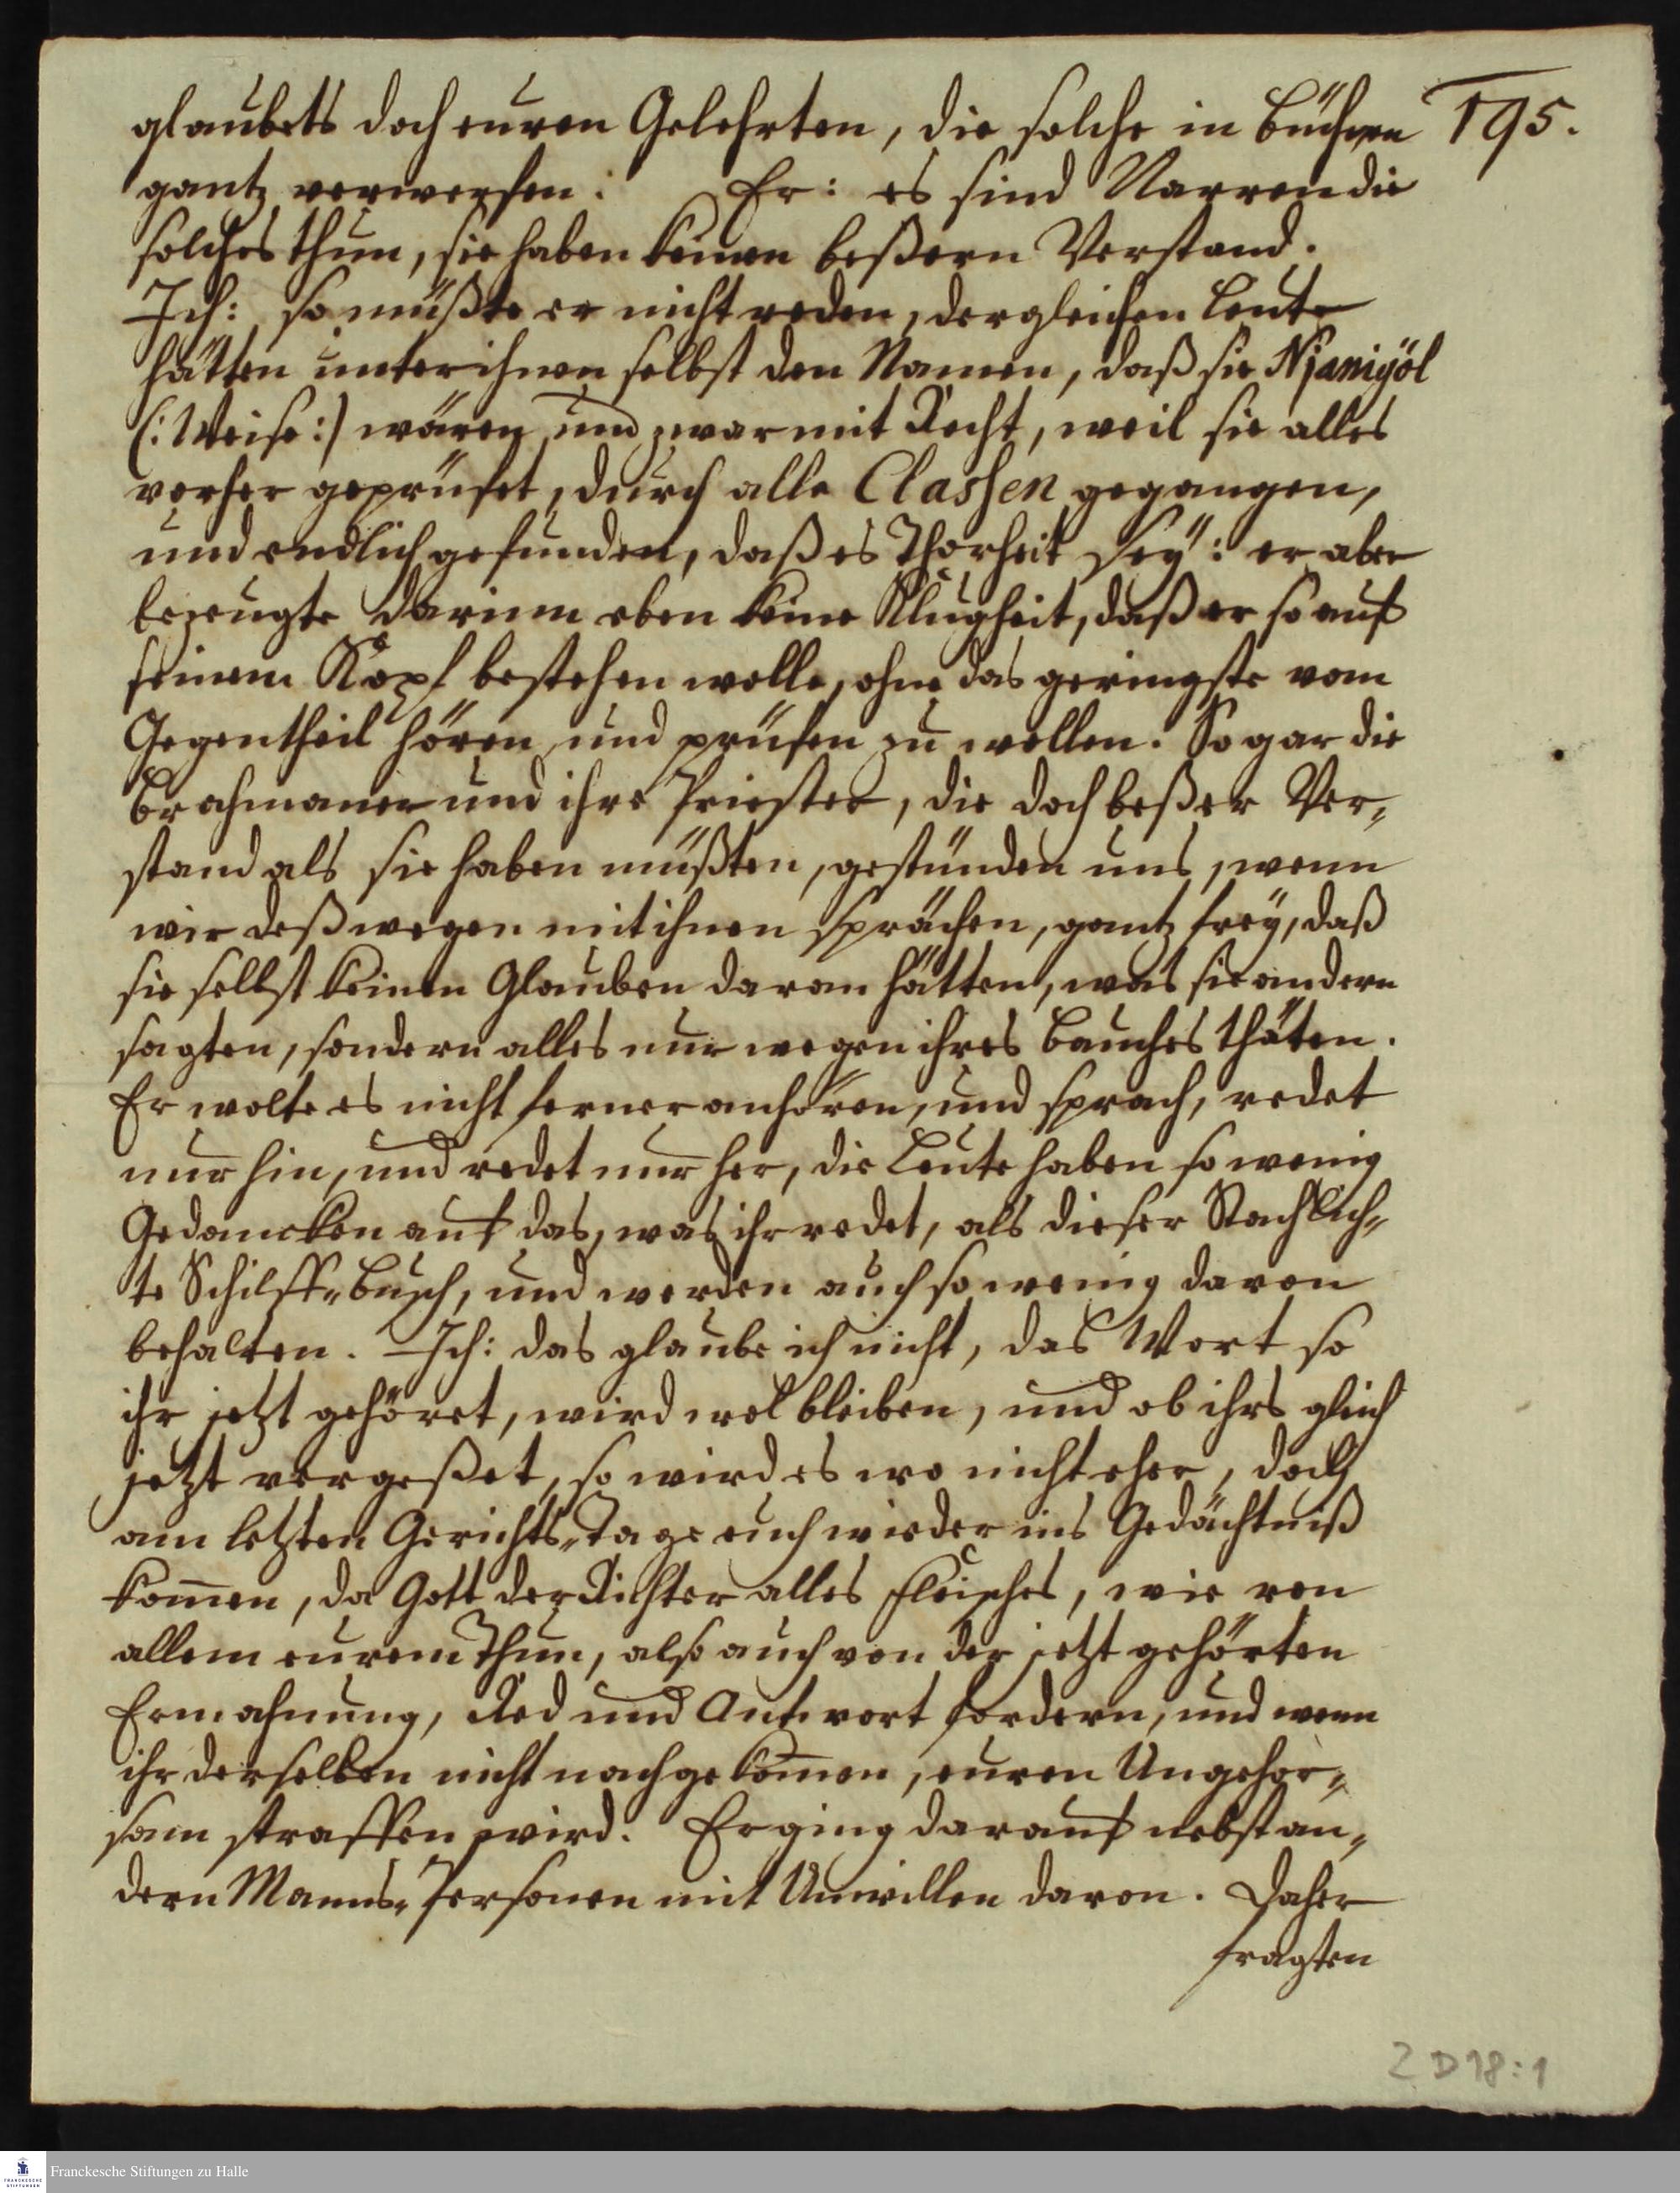 glaubets doch euren Gelehrten, die solche in Büchern 195.
gantz verwerfen. Er: es sind Narren die
solches thun, sie haben keinen beßern Verstand.
Ich: so müßte er nicht reden, dergleichen Leute
hätten unter ihnen selbst den Namen, daß sie Njanigöl
(: Weise :) wären, und zwar mit Recht, weil sie alles
vorher geprüfet, durch alle Classen gegangen,
und endlich gefunden, daß es Thorheit sey: er aber
bezeugte darinn eben keine Klugheit, daß er so auf
seinem Kopf bestehen wolle, ohne das geringste vom
Gegentheil hören und prüfen zu wollen. So gar die
Brahmaner und ihre Priester, die doch beßer Ver-
stand als sie haben müßten, gestünden uns, wenn
wir deßwegen mit ihnen sprächen, gantz frey, daß
sie selbst keinen Glauben daran hätten, was sie andern
sagten, sondern alles nur wegen ihres Bauches thäten.
Er wolte es nicht ferner anhören, und sprach, redet
nur hin, und redet nur her, die Leute haben so wenig
Gedancken auf das, was ihr redet, als dieser Stachlich-
te Schilff-Busch, und werden auch so wenig davon
behalten. Ich: das glaube ich nicht, das Wort so
ihr jetzt gehöret, wird wol bleiben, und ob ihrs gleich
jetzt vergeßet, so wird es wo nicht eher, doch
am letzten Gerichts-Tage euch wieder ins Gedächtniß
kom̄en, da Gott der Richter alles Fleisches, wie von
allem eurem Thun, also auch von der jetzt gehörten
Ermahnung, Red und Antwort fordern, und wenn
ihr derselben nicht nachgekom̄en, euren Ungehor-
sam straffen wird. Er ging darauf nebst an-
dern Manns-Personen mit Unwillen davon. Daher
fragten
Z D 18:1
Franckesche Stiftungen zu Halle